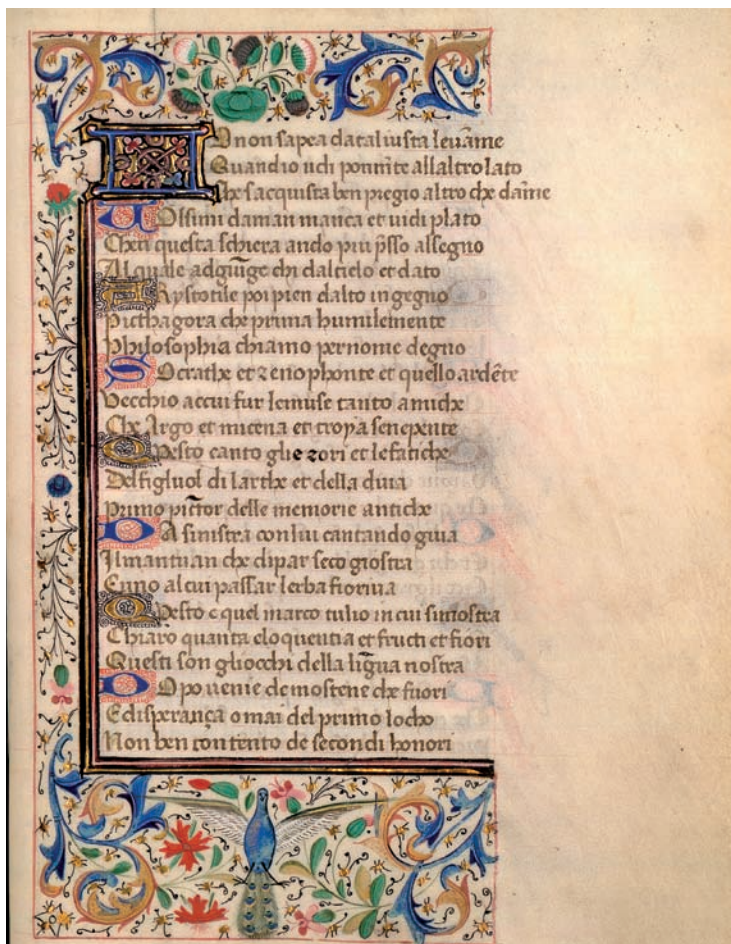 IO non sapea da tal uista leuãme
Quandio udi ponmẽte allaltro lato
Che sacquista ben pregio altro che dãme
UOlsimi daman manca et uidi plato
Chen questa schiera ando piu p̃sso alsegno
Al quale adgiũge chi dalcielo et dato
ARystotile poi pien dalto ingegno
Picthagora che prima humilemente
Philosophia chiamo per nome degno
SOcrathe et zenophonte et quello ardẽte
Vecchio accui fur lemuse tanto amiche
Che Argo et micena et troya senepente
QUesto canto gli errori et lefatiche
Del figluol di larthe et della diua
Primo pictor delle memorie antiche
DA sinistra con lui cantando giua
Il mantuan che dipar seco giostra
Enno al cui passar lerba fioriua
QUesto e quel marco tulio in cui simostra
Chiaro quanta eloquentia et fructi et fiori
Questi son gliocchi della lĩgua nostra
DOpo uenie demostene che fuori
E disperança omai del primo locho
Non ben contento de secondi honori